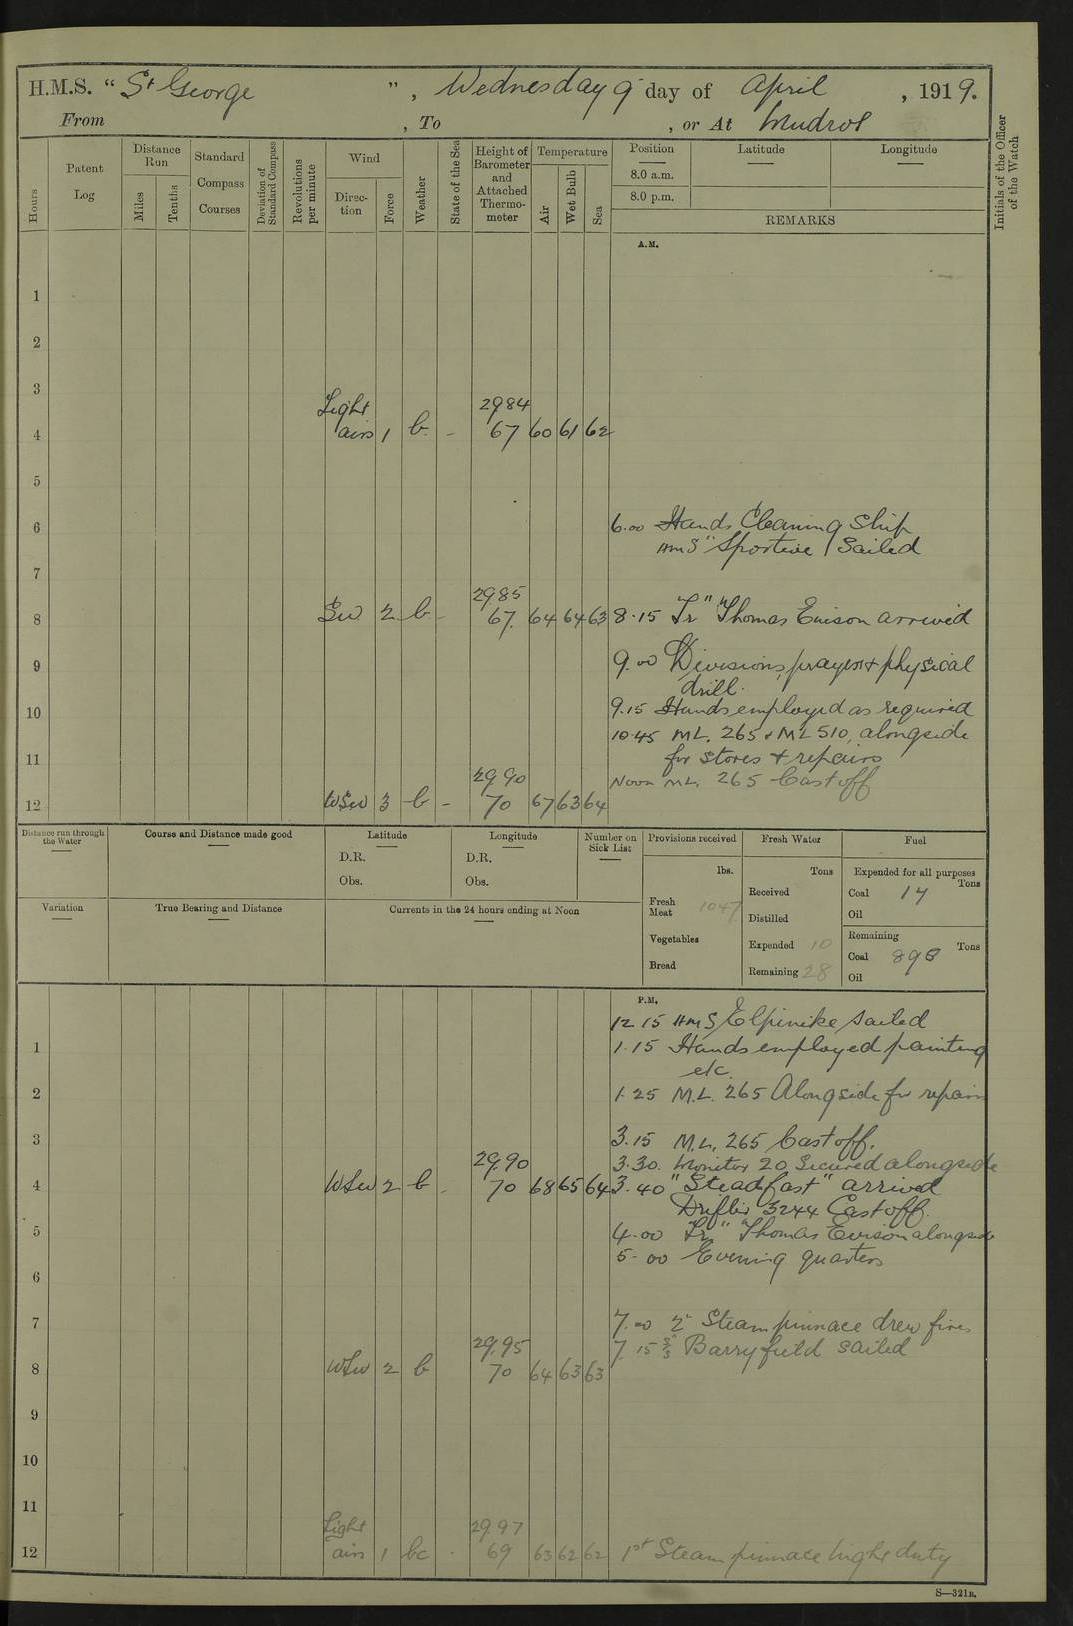 H.M.S. “ St George ” , Wednesday 9 day of April , 1919.
From , To , or At Mudros
Hours
Patent Log
Distance Run
Miles
Tenths
Standard Compass Courses
Deviation of Standard Compass
Revolutions per minute
Wind
Direction
Force
Weather
State of the Sea
Height of Barometer and Attached Thermometer
Temperature
Air
Wet Bulb
Sea
Position
8.0 a.m.
8.0 p.m.
Latitude
Longitude
REMARKS
Initials of the Officer of the Watch
A.M.
1
2
3
Light 2984
4 airs 1 b. - 67 60 61 62
5
6 6.00 Hands Cleaning Ship
HMS "Sportive" Sailed
7
2985
8 SW 2 b - 67. 64 64 63 8.15 Tr" "Thomas Evison arrived
9 9.00 Divisions, prayers + physical
drill.
10 9.15 Hands employed as required
10.45 ML. 265 + ML 510, alongside
11 for stores + repairs
2990 Noon ML. 265 Cast off
12 WSW 3 b - 70 67 63 64
Distance run through the Water
Course and Distance made good
Latitude
D.R.
Obs.
Longitude
D.R.
Obs.
Number on Sick List
Provisions received
lbs.
Fresh Meat 1047
Vegetables
Bread
Fresh Water
Tons
Received
Distilled
Expended 10
Remaining 28
Fuel
Expended for all purposes
Tons
Coal 17
Oil
Remaining
Tons
Coal 898
Oil
Variation
True Bearing and Distance
Currents in the 24 hours ending at Noon
P.M.
12 15 HMS Elpinike sailed
1 1.15 Hands employed painting
etc.
2 1.25 M.L. 265 Alongside for repairs
3 3.15 M.L. 265 Cast off.
29.90 3.30. Monitor 20 Secured alongside
4 WSW 2 b - 70 68 65 64 3.40 "Steadfast" arrived
Drifter 3244 Cast off.
5 4.00 Tr" "Thomas Evison alongside
5.00 Evening quarters
6
7 7.00 2" Steam pinnace drew fires
29.95 7.15 S/S Barryfield sailed
8 WSW 2 b 70 64 63 63
9
10
11
Light 2997
12 airs 1 bc - 69 63 62 62 1st Steam pinnace night duty
S—321B.